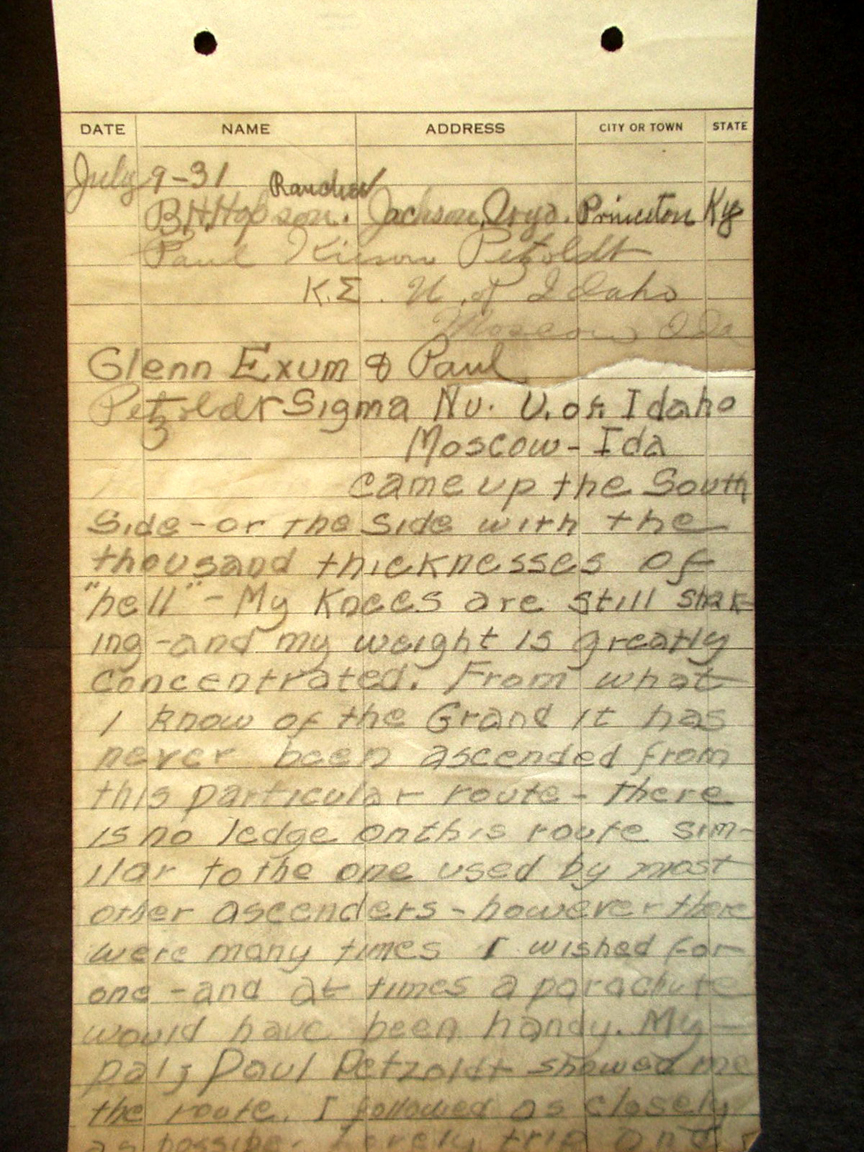 DATE NAME ADDRESS CITY OR TOWN STATE
July 9-31
Rancher
B.H.Hopson. Jackson, Wyo. Princeton Ky
Paul Petzoldt
K.Σ. U. of Idaho
Moscow Ida
Glenn Exum & Paul
Petzoldt Sigma Nu. U. of Idaho
Moscow-Ida
came up the South
Side-or the side with the
thousand thicknesses of
"hell"-My Knees are still shak-
ing-and my weight is greatly
concentrated. From what
I know of the Grand it has
never been ascended from
this particular route-there
is no ledge on this route sim-
ilar to the one used by most
other ascenders-however there
were many times I wished for
one-and at times a parachute
would have been handy. My-
pal; Paul Petzoldt showed me
the route. I followed as closely
as possibe. Lovely trip and